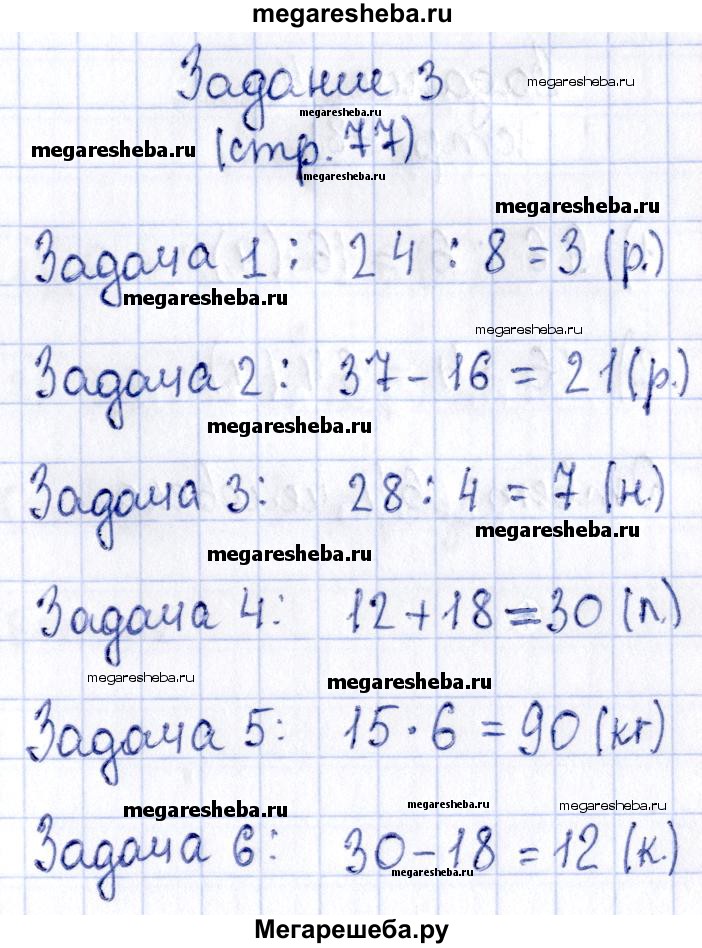 megaresheba.ru
Задание 3
megaresheba.ru
megaresheba.ru
megaresheba.ru
(стр. 77)
megaresheba.ru
megaresheba.ru
Задача 1: 24 : 8 = 3 (р.)
megaresheba.ru
megaresheba.ru
Задача 2: 37 - 16 = 21 (р.)
megaresheba.ru
Задача 3: 28 : 4 = 7 (н.)
megaresheba.ru
megaresheba.ru
Задача 4: 12 + 18 = 30 (п.)
megaresheba.ru
megaresheba.ru
Задача 5: 15 · 6 = 90 (кг)
megaresheba.ru
megaresheba.ru
megaresheba.ru
Задача 6: 30 - 18 = 12 (к.)
megaresheba.ru
Мегарешеба.ру